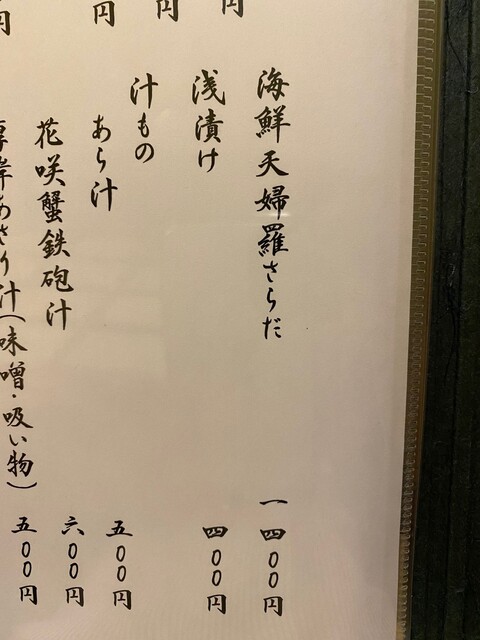 海鮮天婦羅さらだ 一四〇〇円
浅漬け 四〇〇円
汁もの
あら汁 五〇〇円
花咲蟹鉄砲汁 六〇〇円
厚岸あさり汁(味噌・吸い物) 五〇〇円
円
円
円
円